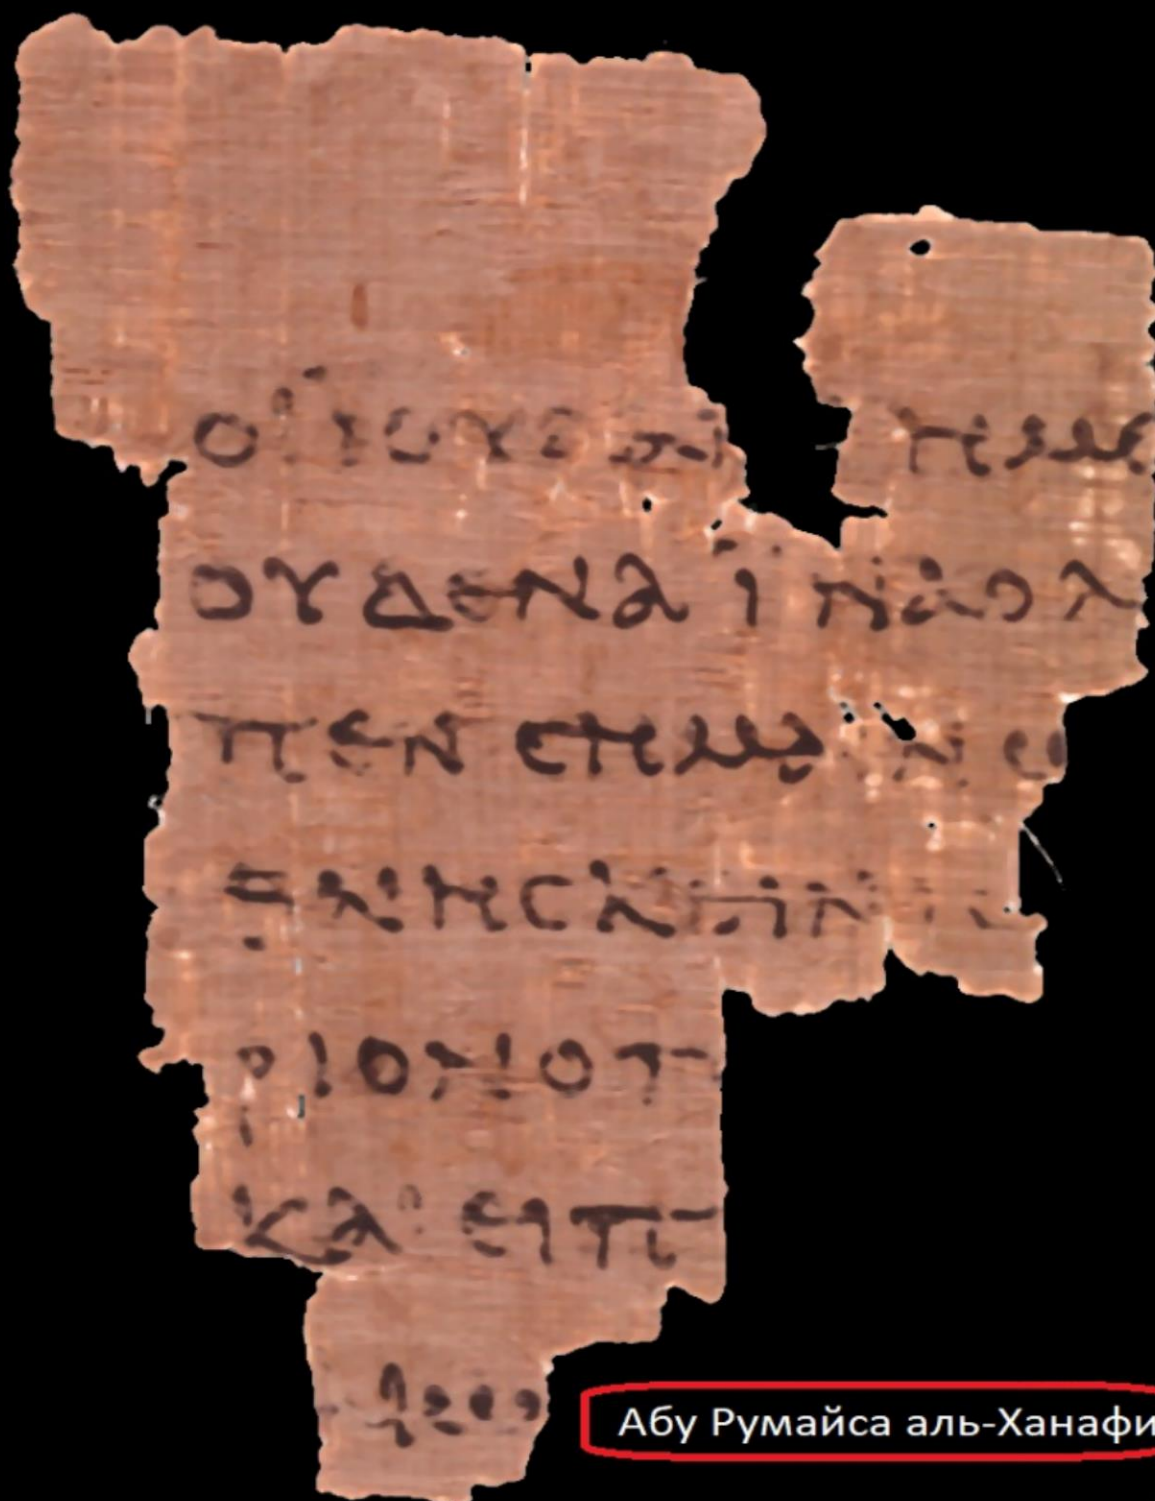 ΟΙ ΙΟΥΔΑΙ ΗΜΕ
ΟΥΔΕΝΑ ΙΝΑ Ο Λ
ΠΕΝ ϹΗΜΑΙΝΩ
ΘΝΗϹΚΕΙΝ
ΡΙΟΝ Ο Π
ΚΑΙ ΕΙΠ
Абу Румайса аль-Ханафи